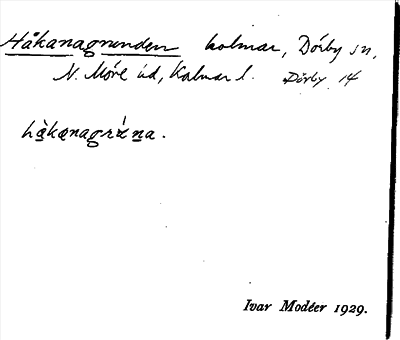 Håkanagrunden holmar, Dörby sn,
N. Möre hd, Kalmar l. Dörby 14
håkanagruna.
Ivar Modéer 1929.